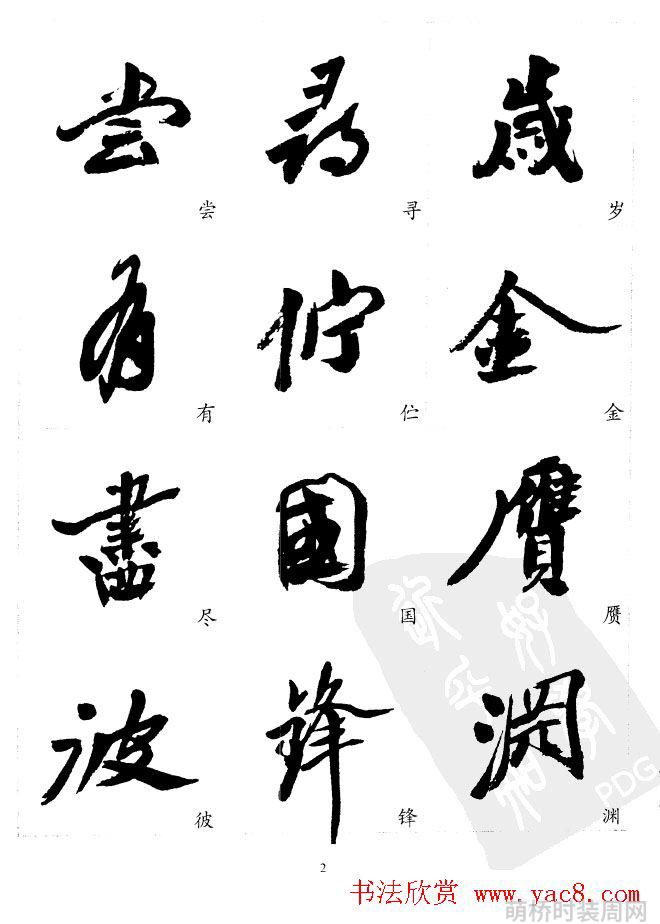 嘗 尋 歲
尝 寻 岁
有 佇 金
有 伫 金
盡 國 贋
尽 国 赝
彼 鋒 淵
彼 锋 渊
2
书法欣赏 www.yac8.com
萌桥时装周网
PDG